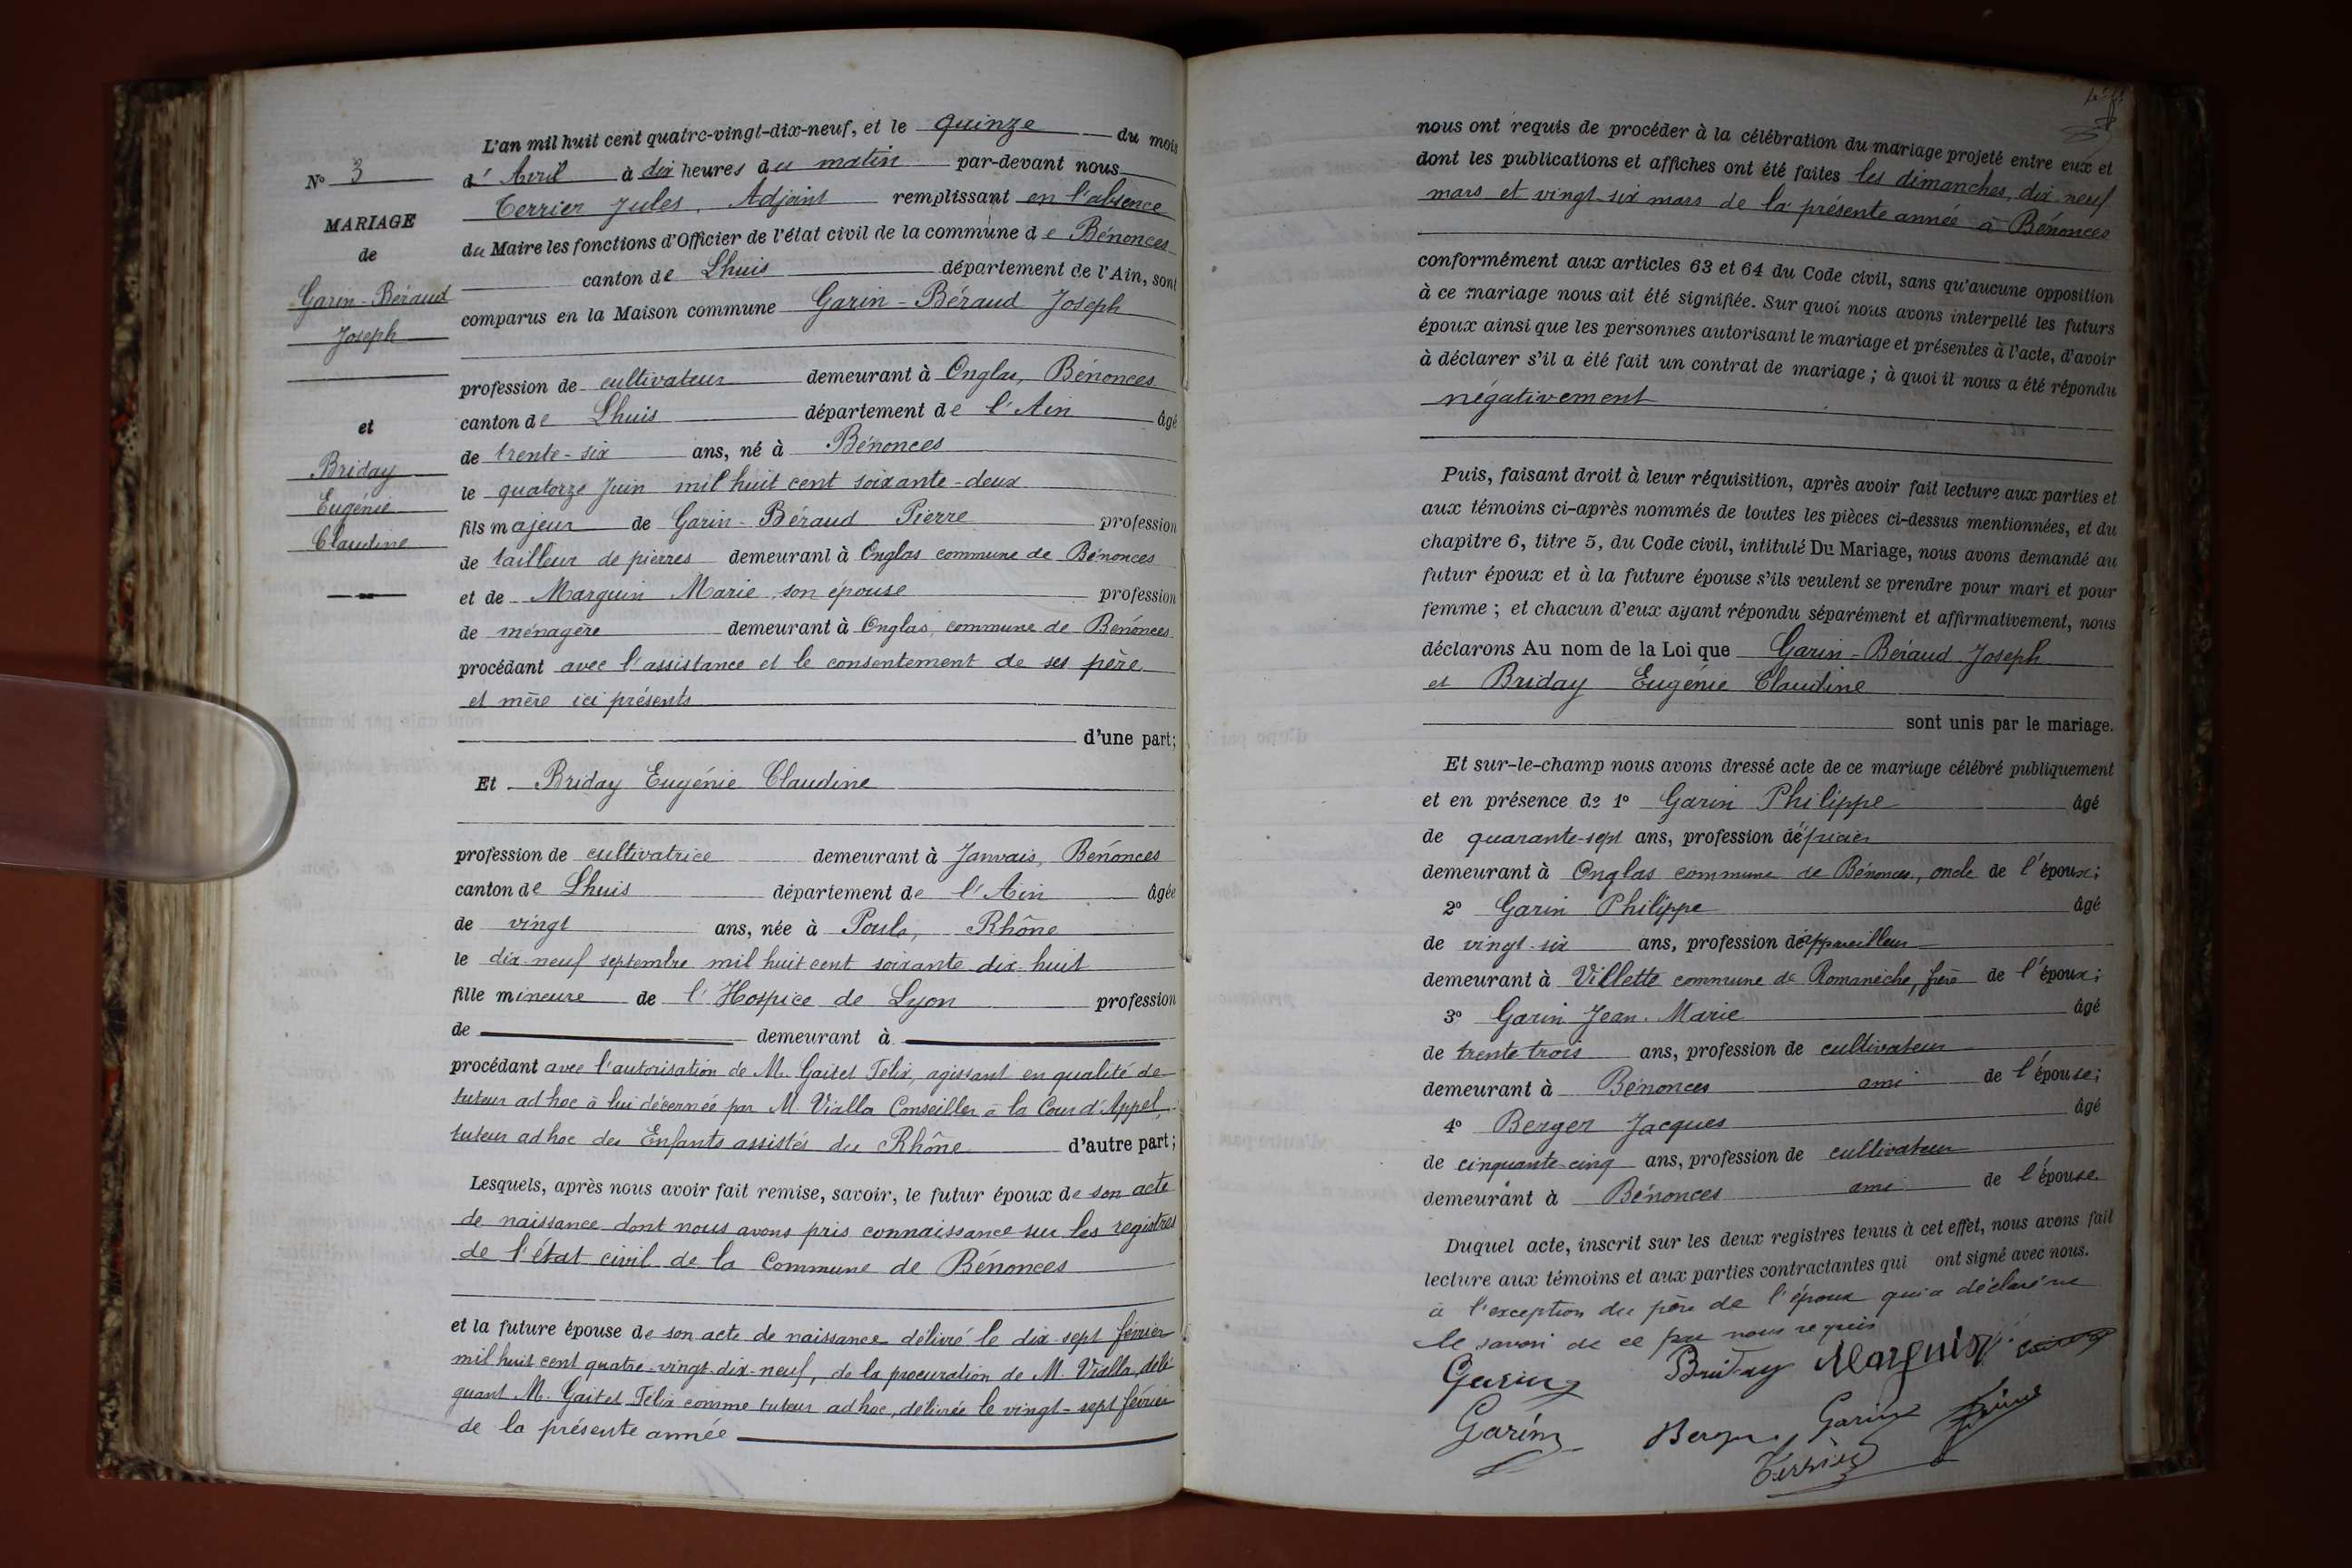 N° 3
MARIAGE
de
Garin-Béraud
Joseph
et
Briday
Eugénie
Claudine
L'an mil huit cent quatre-vingt-dix-neuf, et le quinze du mois
d'Avril à dix heures du matin par-devant nous
Terrier Jules, Adjoint remplissant en l'absence
du Maire les fonctions d'Officier de l'état civil de la commune de Bénonces
canton de Lhuis département de l'Ain, sont
comparus en la Maison commune Garin-Béraud Joseph
profession de cultivateur demeurant à Onglas, Bénonces
canton de Lhuis département de l'Ain âgé
de trente-six ans, né à Bénonces
le quatorze Juin mil huit cent soixante-deux
fils majeur de Garin-Béraud Pierre profession
de tailleur de pierres demeurant à Onglas commune de Bénonces
et de Marguin Marie son épouse profession
de ménagère demeurant à Onglas, commune de Bénonces
procédant avec l'assistance et le consentement de ses père
et mère ici présents
d'une part;
Et Briday Eugénie Claudine
profession de cultivatrice demeurant à Janvais, Bénonces
canton de Lhuis département de l'Ain âgée
de vingt ans, née à Poule, Rhône
le dix-neuf septembre mil huit cent soixante dix-huit
fille mineure de l'Hospice de Lyon profession
de demeurant à
procédant avec l'autorisation de M. Gaitet Félix, agissant en qualité de
tuteur ad hoc à lui décernée par M. Vialla Conseiller à la Cour d'Appel,
tuteur ad hoc des Enfants assistés du Rhône d'autre part;
Lesquels, après nous avoir fait remise, savoir, le futur époux de son acte
de naissance dont nous avons pris connaissance sur les registres
de l'état civil de la Commune de Bénonces
et la future épouse de son acte de naissance délivré le dix-sept février
mil huit cent quatre-vingt-dix-neuf, de la procuration de M. Vialla, délé
guant M. Gaitet Félix comme tuteur ad hoc, délivrée le vingt-sept février
de la présente année
nous ont requis de procéder à la célébration du mariage projeté entre eux et
dont les publications et affiches ont été faites les dimanches, dix-neuf
mars et vingt-six mars de la présente année à Bénonces
conformément aux articles 63 et 64 du Code civil, sans qu'aucune opposition
à ce mariage nous ait été signifiée. Sur quoi nous avons interpellé les futurs
époux ainsi que les personnes autorisant le mariage et présentes à l'acte, d'avoir
à déclarer s'il a été fait un contrat de mariage ; à quoi il nous a été répondu
négativement
Puis, faisant droit à leur réquisition, après avoir fait lecture aux parties et
aux témoins ci-après nommés de toutes les pièces ci-dessus mentionnées, et du
chapitre 6, titre 5, du Code civil, intitulé Du Mariage, nous avons demandé au
futur époux et à la future épouse s'ils veulent se prendre pour mari et pour
femme ; et chacun d'eux ayant répondu séparément et affirmativement, nous
déclarons Au nom de la Loi que Garin-Béraud Joseph
et Briday Eugénie Claudine
sont unis par le mariage.
Et sur-le-champ nous avons dressé acte de ce mariage célébré publiquement
et en présence de 1° Garin Philippe âgé
de quarante-sept ans, profession d'épicier
demeurant à Onglas commune de Bénonces, oncle de l'époux;
2° Garin Philippe âgé
de vingt-six ans, profession d'appareilleur
demeurant à Villette commune de Romanèche, frère de l'époux;
3° Garin Jean-Marie âgé
de trente trois ans, profession de cultivateur
demeurant à Bénonces ami de l'épouse;
4° Berger Jacques âgé
de cinquante-cinq ans, profession de cultivateur
demeurant à Bénonces ami de l'épouse
Duquel acte, inscrit sur les deux registres tenus à cet effet, nous avons fait
lecture aux témoins et aux parties contractantes qui ont signé avec nous.
à l'exception du père de l'époux qui a déclaré ne
le savoir de ce par nous requis
Garin Briday Marguin
Garin Berger Garin
Terrier